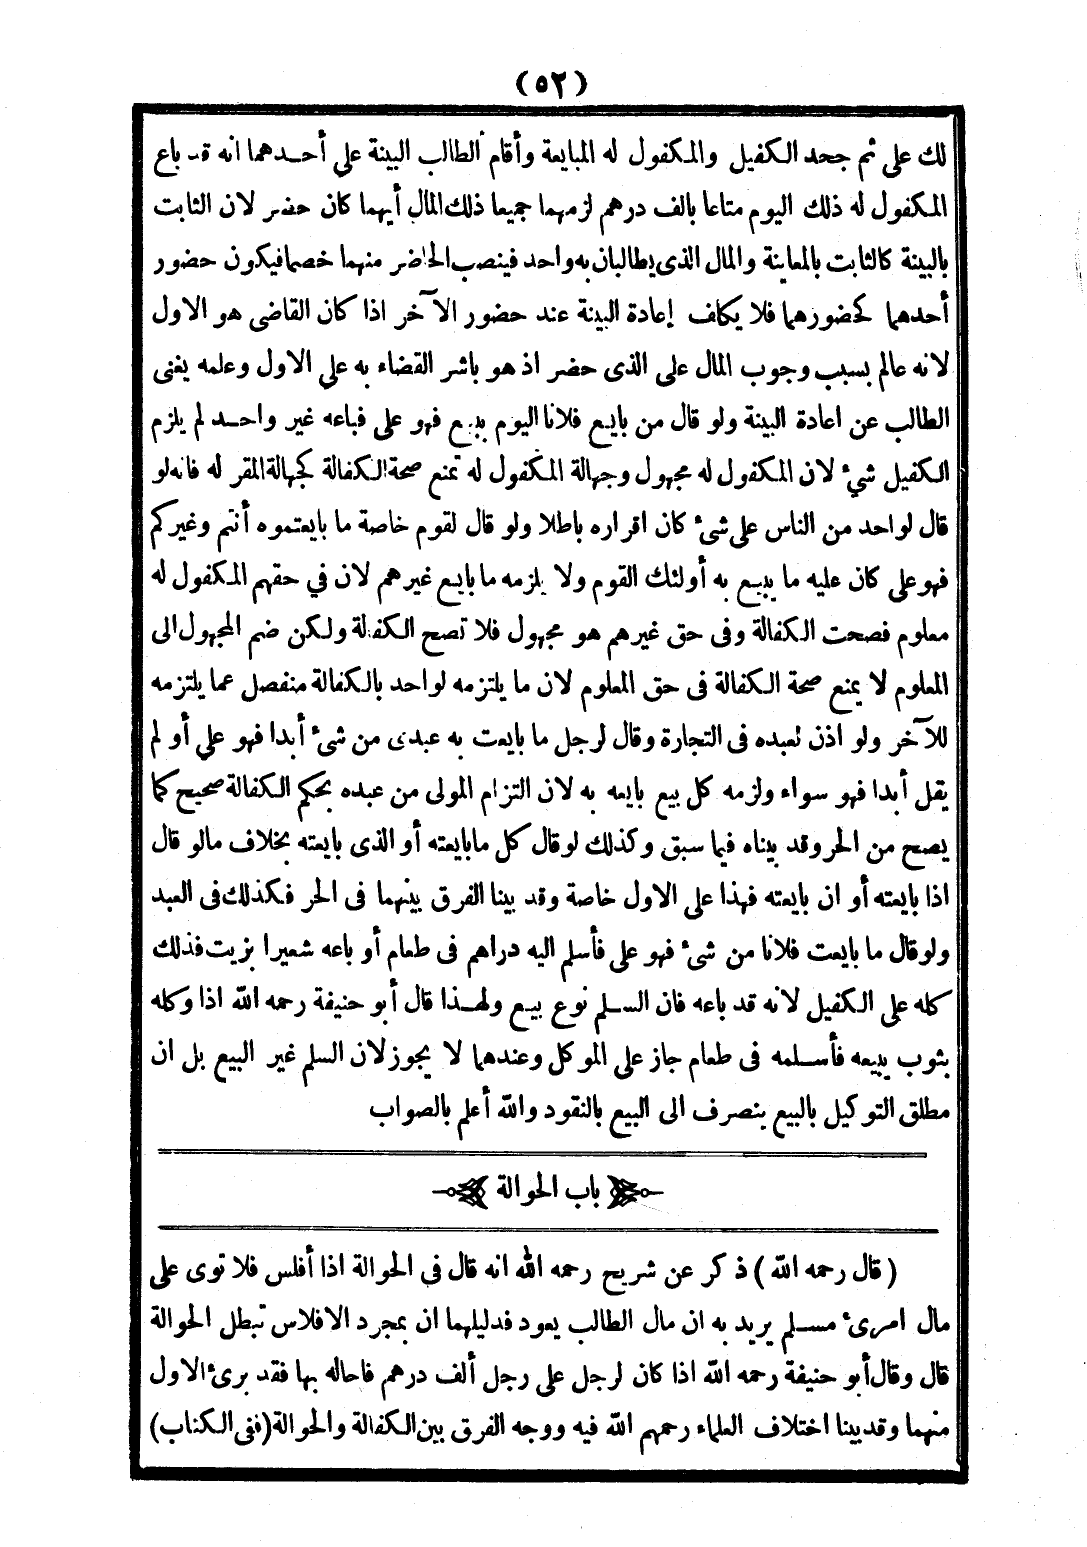 (٥٢)
لك على ثم جحد الكفيل والمكفول له المبايعة وأقام الطالب البينة على أحدهما انه قد باع
المكفول له ذلك اليوم متاعا بالف درهم لزمهما جميعا ذلك المال أيهما كان حضر لان الثابت
بالبينة كالثابت بالمعاينة والمال الذى يطالبان به واحد فينصب الحاضر منهما خصما فيكون حضور
أحدهما كحضورهما فلا يكلف إعادة البينة عند حضور الآخر اذا كان القاضى هو الاول
لانه عالم بسبب وجوب المال على الذى حضر اذ هو باشر القضاء به على الاول وعلمه يغنى
الطالب عن اعادة البينة ولو قال من بايع فلانا اليوم ببيع فهو على فباعه غير واحد لم يلزم
الكفيل شئ لان المكفول له مجهول وجهالة المكفول له تمنع صحة الكفالة كجهالة المقر له فانه لو
قال لواحد من الناس على شئ كان اقراره باطلا ولو قال لقوم خاصة ما بايعتموه أنتم وغيركم
فهو على كان عليه ما يبيع به أولئك القوم ولا يلزمه ما بايع غيرهم لان في حقهم المكفول له
معلوم فصحت الكفالة وفى حق غيرهم هو مجهول فلا تصح الكفالة ولكن ضم المجهول الى
المعلوم لا يمنع صحة الكفالة فى حق المعلوم لان ما يلتزمه لواحد بالكفالة منفصل عما يلتزمه
للآخر ولو اذن لعبده فى التجارة وقال لرجل ما بايعت به عبدى من شئ أبدا فهو علي أو لم
يقل أبدا فهو سواء ولزمه كل بيع بايعه به لان التزام المولى من عبده بحكم الكفالة صحيح كما
يصح من الحر وقد بيناه فيما سبق وكذلك لو قال كل ما بايعته أو الذى بايعته بخلاف مالو قال
اذا بايعته أو ان بايعته فهذا على الاول خاصة وقد بينا الفرق بينهما فى الحر فكذلك فى العبد
ولو قال ما بايعت فلانا من شئ فهو على فأسلم اليه دراهم فى طعام أو باعه شعيرا بزيت فذلك
كله على الكفيل لانه قد باعه فان السلم نوع بيع ولهذا قال أبو حنيفة رحمه الله اذا وكله
بثوب يبيعه فأسلمه فى طعام جاز على الموكل وعندهما لا يجوز لان السلم غير البيع بل ان
مطلق التوكيل بالبيع ينصرف الى البيع بالنقود والله أعلم بالصواب
باب الحوالة
( قال رحمه الله ) ذكر عن شريح رحمه الله انه قال في الحوالة اذا أفلس فلا توى على
مال امرئ مسلم يريد به ان مال الطالب يعود فدليلهما ان بمجرد الافلاس تبطل الحوالة
قال وقال أبو حنيفة رحمه الله اذا كان لرجل على رجل ألف درهم فاحاله بها فقد برئ الاول
منهما وقد بينا اختلاف العلماء رحمهم الله فيه ووجه الفرق بين الكفالة والحوالة (ففى الكتاب)